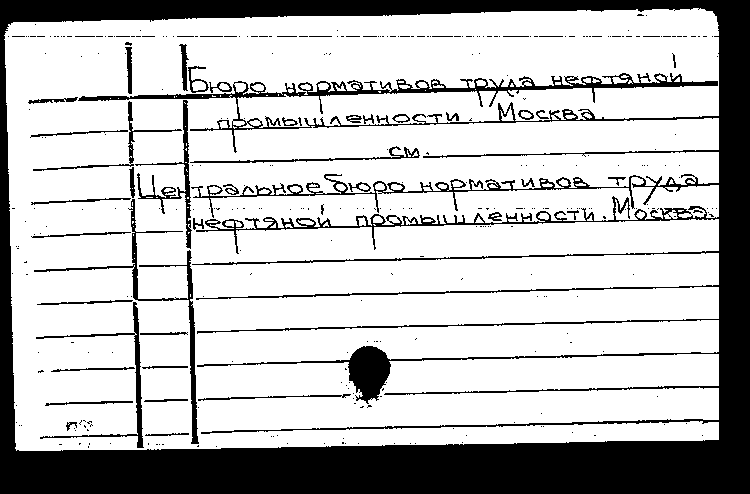 Бюро нормативов труда нефтяной
промышленности. Москва.
см.
Центральное бюро нормативов труда
нефтяной промышленности. Москва.